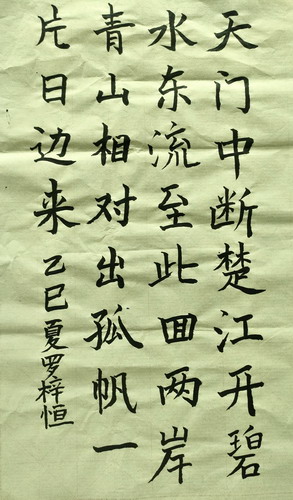 天门中断楚江开碧
水东流至此回两岸
青山相对出孤帆一
片日边来乙巳夏罗梓恒